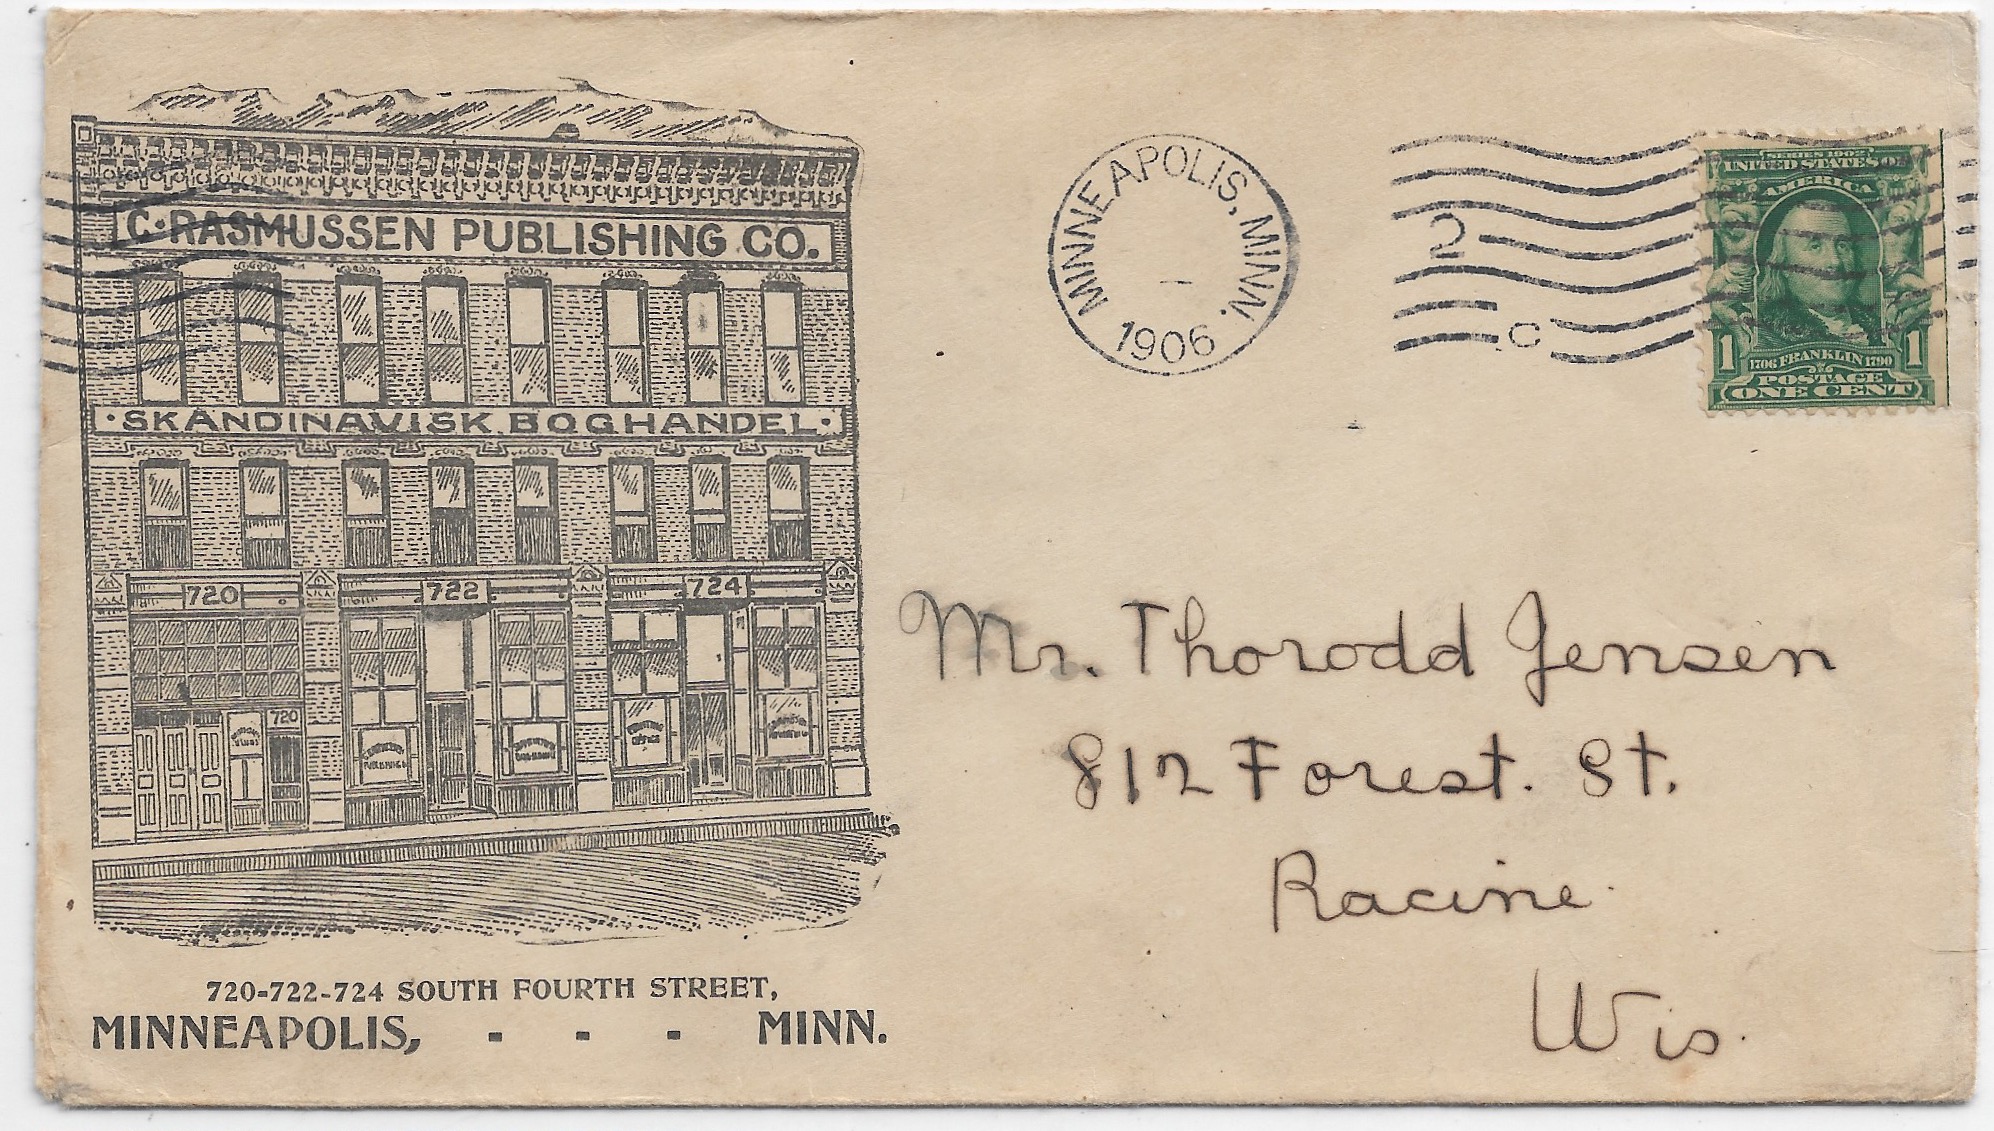 C. RASMUSSEN PUBLISHING CO.
· SKANDINAVISK BOGHANDEL ·
720
722
724
720
PRINTING
OFFICE
720-722-724 SOUTH FOURTH STREET,
MINNEAPOLIS, - - - MINN.
MINNEAPOLIS, MINN.
1906
2
C
SERIES 1902
UNITED STATES OF
AMERICA
1706 FRANKLIN 1790
1 1
POSTAGE
ONE CENT
Mr. Thorodd Jensen
812 Forest. St.
Racine
Wis.